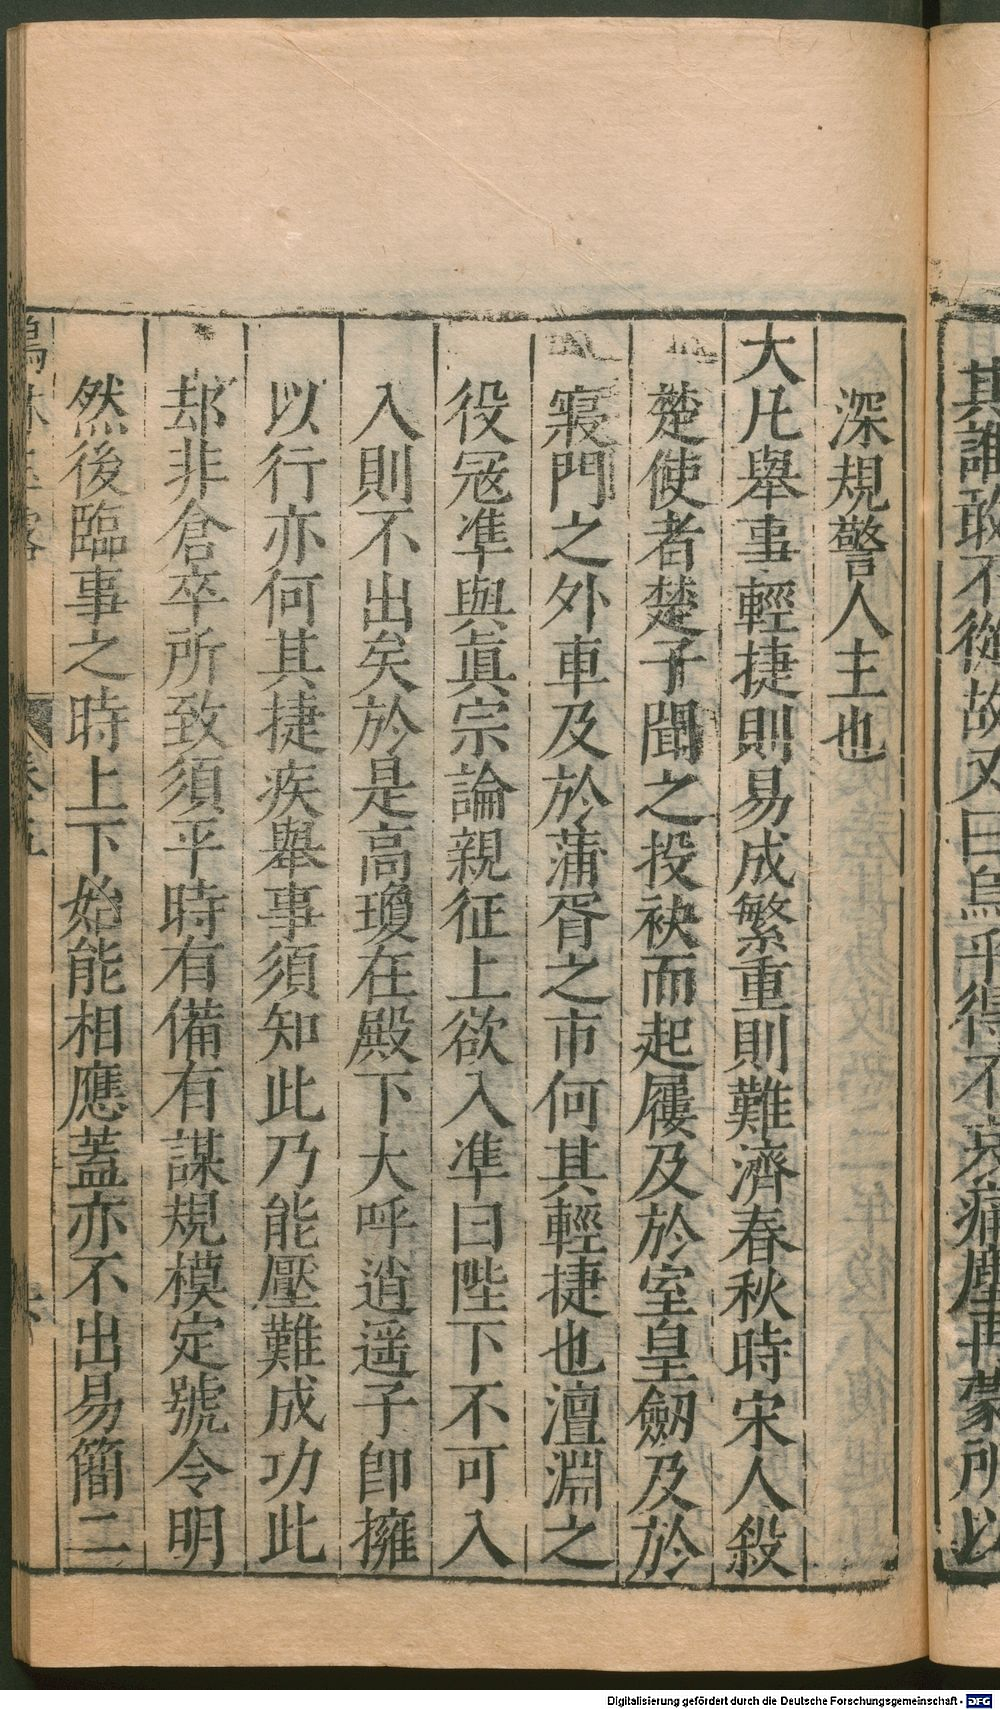 其誰敢不從故又曰烏乎得不哀痛塵再蒙所以
深規警人主也
大凡舉事輕捷則易成繁重則難濟春秋時宋人殺
楚使者楚子聞之投袂而起屨及於室皇劒及於
寢門之外車及於蒲胥之市何其輕捷也澶淵之
役冦凖與眞宗論親征上欲入凖曰陛下不可入
入則不出矣於是高瓊在殿下大呼逍遥子卽擁
以行亦何其捷疾舉事須知此乃能壓難成功此
却非倉卒所致須平時有備有謀規模定號令明
然後臨事之時上下始能相應蓋亦不出易簡二
Digitalisierung gefördert durch die Deutsche Forschungsgemeinschaft - DFG